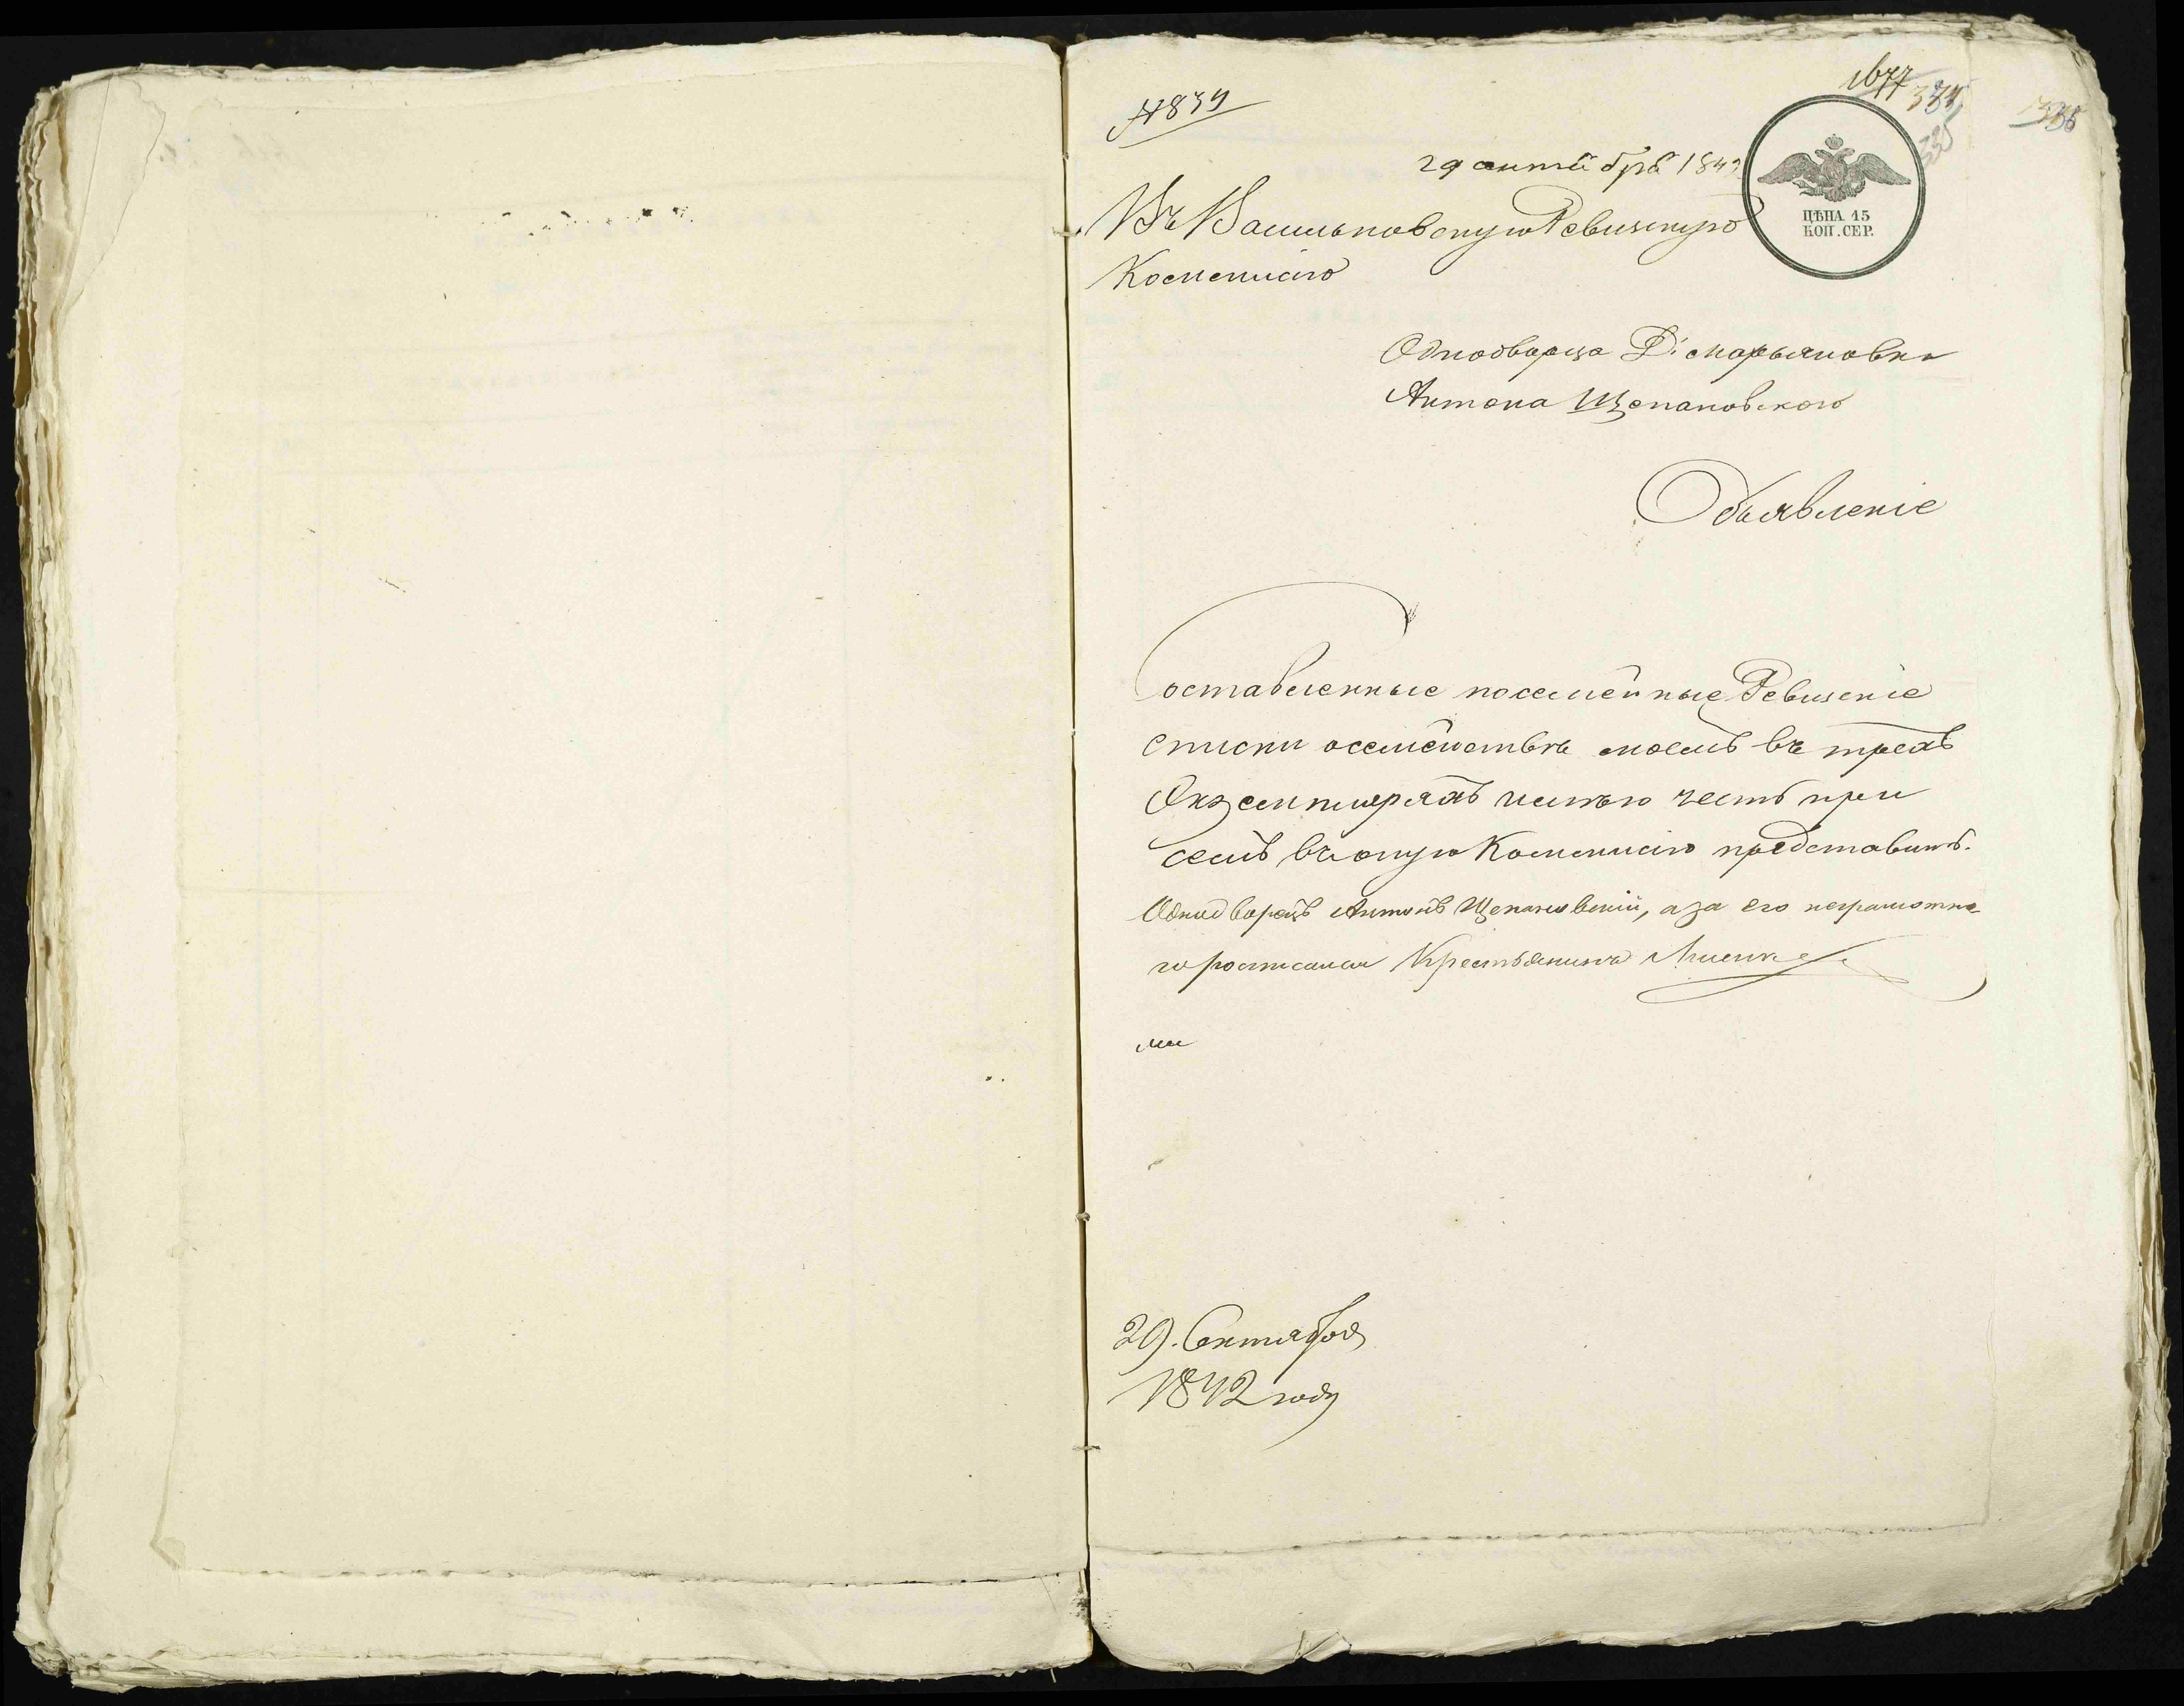 1677
№839
335
336
29 октября 1842
ЦѢНА 15
КОП. СЕР.
Въ Васильковскую Ревизскую
Коммисію
Однодворца Д: Марьяновки
Антона Щепановского
Обьявленіе
Составленные посемейные Ревизскіе
списки осемействе моемъ въ трехъ
Экземплярахъ имею честь при
семъ въоную Коммисию представить.
Однодворецъ Антонъ Щепановскій, аза его неграмотна
го росписался Крестьянинъ
29. Сентября
1842 году